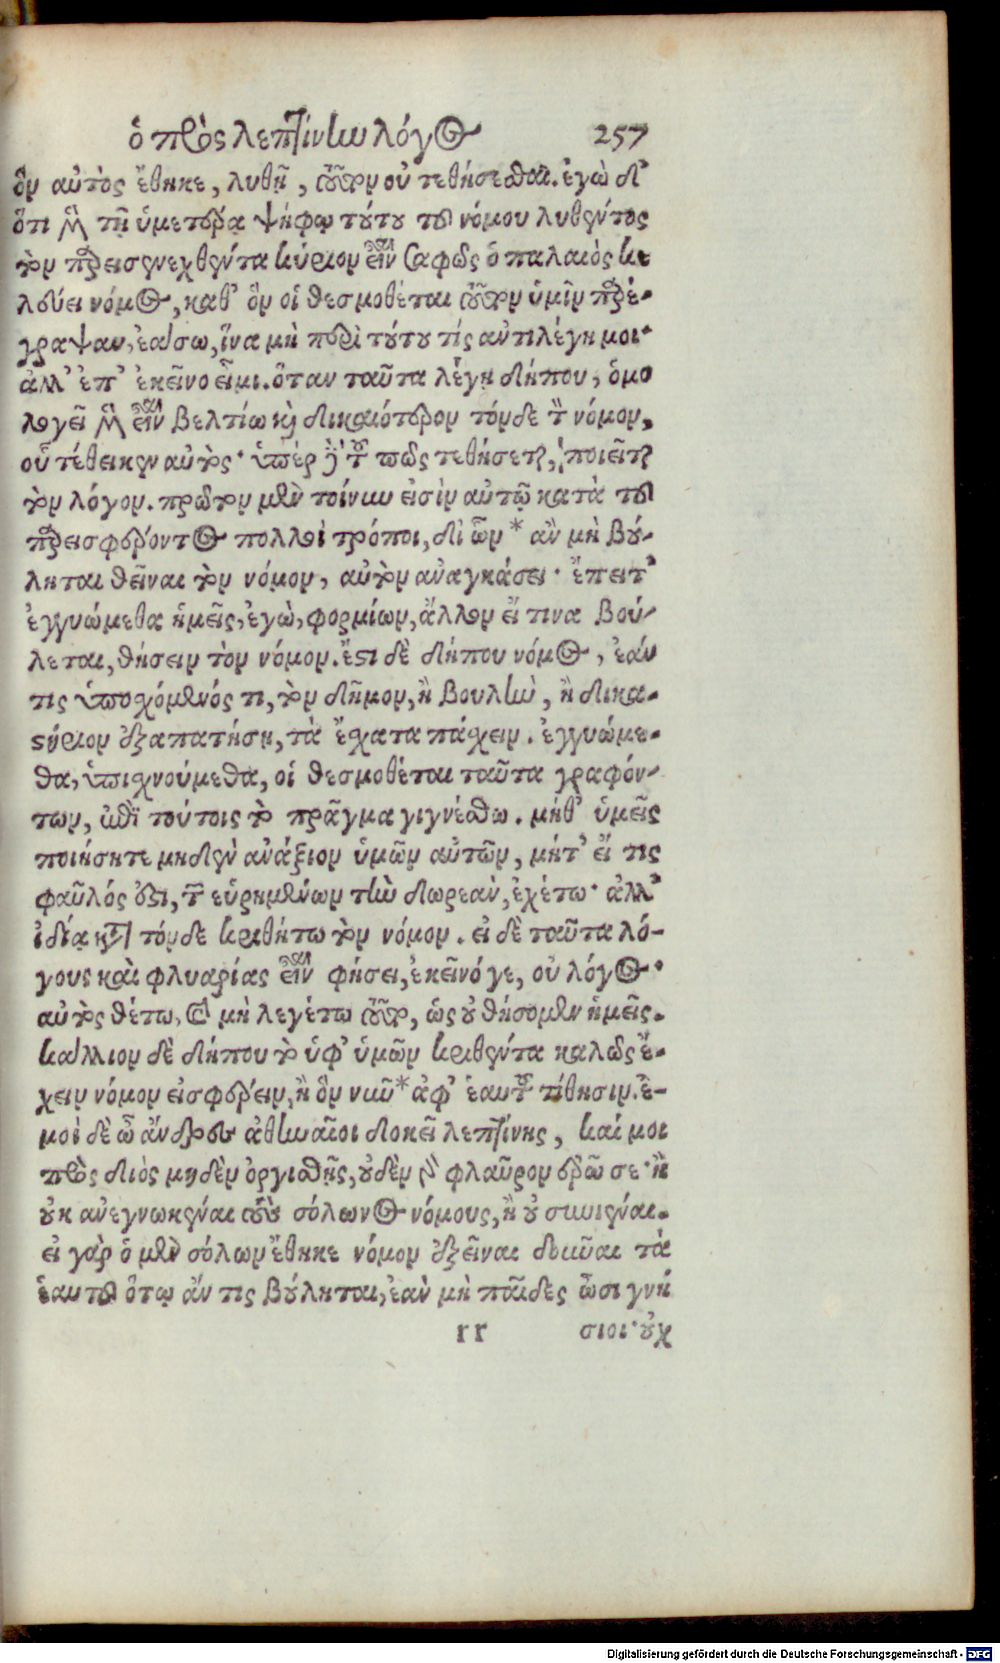 ὁ πρὸς λεπτίνην λόγος 257
ὃν αὐτὸς ἔθηκε, λυθῇ, τοῦτον οὐ τεθήσεσθαι. ἐγὼ δ'
ὅτι μὲν τῇ ὑμετέρᾳ ψήφῳ τούτου τοῦ νόμου λυθέντος
τὸν παρεισενεχθέντα κύριον εἶναι σαφῶς ὁ παλαιὸς κε
λεύει νόμος, καθ' ὃν οἱ θεσμοθέται τοῦτον ὑμῖν παρέ-
γραψαν, ἐάσω, ἵνα μὴ περὶ τούτου τίς ἀντιλέγῃ μοι·
ἀλλ' ἐπ' ἐκεῖνο εἶμι. ὅταν ταῦτα λέγῃ δήπου, ὁμο
λογεῖ μὲν εἶναι βελτίω καὶ δικαιότερον τόνδε τὸν νόμον,
οὗ τέθεικεν αὐτός· ὑπὲρ δὲ τοῦ πῶς τεθήσεται, ποιεῖται
τὸν λόγον. πρῶτον μὲν τοίνυν εἰσὶν αὐτῷ κατὰ τοῦ
παρεισφέροντος πολλοὶ τρόποι, δι' ὧν * ἂν μὴ βού-
ληται θεῖναι τὸν νόμον, αὐτὸν ἀναγκάσει· ἔπειτ'
ἐγγυώμεθα ἡμεῖς, ἐγὼ, φορμίων, ἄλλον εἴ τινα βού-
λεται, θήσειν τὸν νόμον. ἔστι δὲ δήπου νόμος, ἐάν
τις ὑποσχόμενός τι, τὸν δῆμον, ἢ βουλὴν, ἢ δικα-
στήριον ἐξαπατήσῃ, τὰ ἔσχατα πάσχειν. ἐγγυώμε-
θα, ὑπισχνούμεθα, οἱ θεσμοθέται ταῦτα γραφόν-
των, ἐπὶ τούτοις τὸ πρᾶγμα γιγνέσθω. μήθ' ὑμεῖς
ποιήσητε μηδὲν ἀνάξιον ὑμῶν αὐτῶν, μήτ' εἴ τις
φαῦλός ἐστι, τῶν εὑρημένων τὴν δωρεὰν, ἐχέτω· ἀλλ'
ἰδίᾳ κατὰ τόνδε κριθήτω τὸν νόμον. εἰ δὲ ταῦτα λό-
γους καὶ φλυαρίας εἶναι φήσει, ἐκεῖνό γε, οὐ λόγος·
αὐτὸς θέτω, καὶ μὴ λεγέτω τοῦτο, ὡς οὐ θήσομεν ἡμεῖς.
κάλλιον δὲ δήπου τὸ ὑφ' ὑμῶν κριθέντα καλῶς ἔ-
χειν νόμον εἰσφέρειν, ἢ ὃν νῦν * ἀφ' ἑαυτοῦ τίθησιν. ἐ-
μοὶ δὲ ὦ ἄνδρες ἀθηναῖοι δοκεῖ λεπτίνης, καί μοι
πρὸς διὸς μηδὲν ὀργισθῇς, οὐδὲν γὰρ φλαῦρον ἐρῶ σε· ἢ
οὐκ ἀνεγνωκέναι τοὺς σόλωνος νόμους, ἢ οὐ συνιέναι.
εἰ γὰρ ὁ μὲν σόλων ἔθηκε νόμον ἐξεῖναι δοῦναι τὰ
ἑαυτοῦ ὅτῳ ἄν τις βούληται, ἐὰν μὴ παῖδες ὦσι γνή
rr σιοι· οὐχ
Digitalisierung gefördert durch die Deutsche Forschungsgemeinschaft - DFG